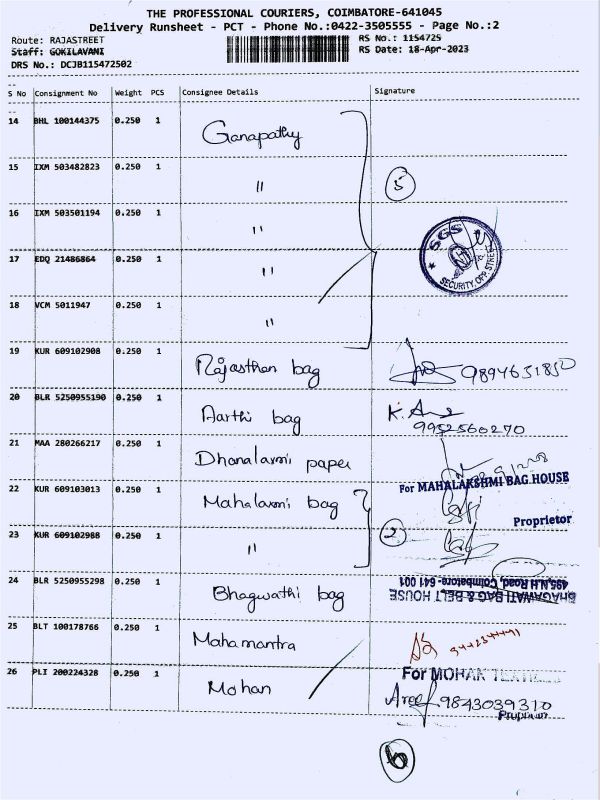 THE PROFESSIONAL COURIERS, COIMBATORE-641045
Delivery Runsheet - PCT - Phone No.:0422-3505555 - Page No.:2
Route: RAJASTREET RS No.: 1154725
Staff: GOKILAVANI RS Date: 18-Apr-2023
DRS No.: DCJB115472502
S No Consignment No Weight PCS Consignee Details Signature
14 BHL 100144375 0.250 1 Ganapathy
15 IXM 503482823 0.250 1 " 5
16 IXM 503501194 0.250 1 "
SGS
17 EDQ 21486864 0.250 1 "
SECURITY, OPP. STREET
18 VCM 5011947 0.250 1 "
19 KUR 609102908 0.250 1 Rajasthan bag 9894631850
20 BLR 5250955190 0.250 1 Aarthi bag K.
9952560270
21 MAA 280266217 0.250 1 Dhanalaxmi paper
For MAHALAKSHMI BAG HOUSE
22 KUR 609103013 0.250 1 Mahalaxmi bag
Proprietor
23 KUR 609102988 0.250 1 " 2
24 BLR 5250955298 0.250 1 Bhagwathi bag
BHAGAWATI BAG & BELT HOUSE
495, N.H. Road, Coimbatore- 641 001
25 BLT 100178766 0.250 1 Mahamantra
26 PLI 200224328 0.250 1 Mohan For MOHAN
9843039310
6